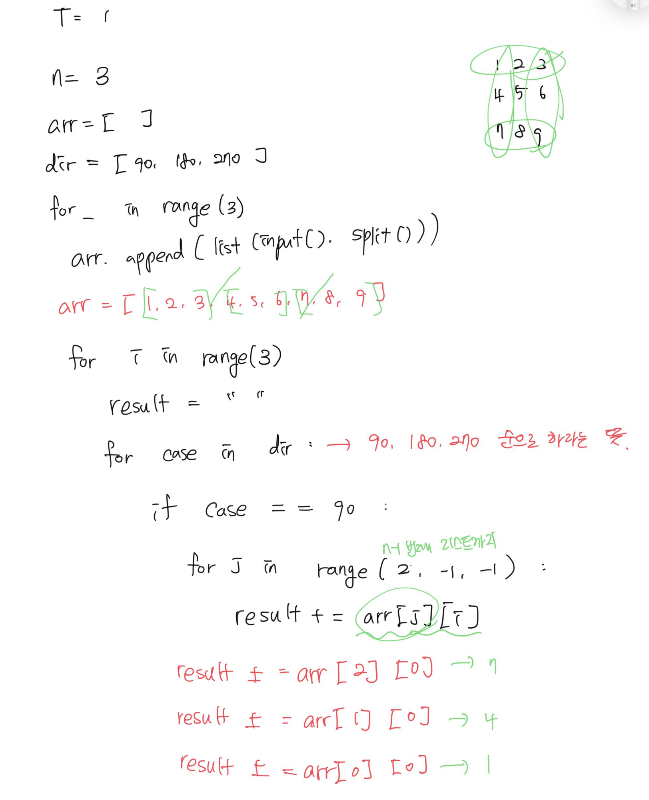 T= 1
n= 3
1 2 3
4 5 6
7 8 9
arr = [ ]
dir = [ 90, 180, 270 ]
for _ in range (3)
arr. append ( list (input(). split()))
arr = [ [1, 2, 3], [4, 5, 6], [7, 8, 9] ]
for i in range(3)
result = " "
for case in dir : → 90, 180, 270 순으로 하라는 뜻.
if case = = 90 :
n-1 번째 리스트까지
for J in range ( 2, -1, -1 ) :
result + = arr[J][i]
result + = arr [2] [0] → 7
result + = arr[1] [0] → 4
result + = arr[0] [0] → 1